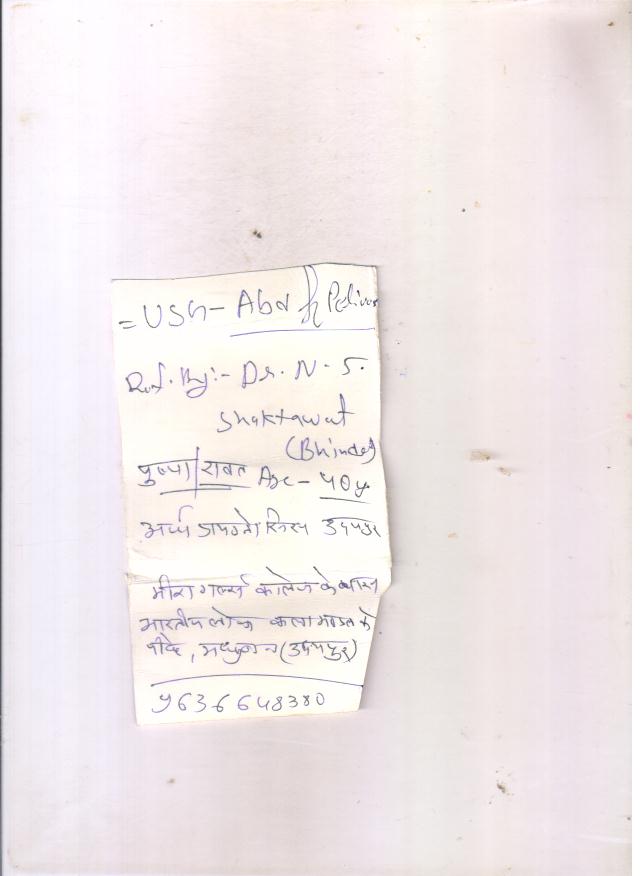 = USG - Abd & Pelivas
Ref. By:- Dr. N. S.
Shaktawat
(Bhinder)
पुष्पा / रावत Age - 40 y.
उदयपुर
मीरा गर्ल्स कालेज के पास
भारतीय लोक कला मण्डल के
पीछे, मधुबन (उदयपुर)
9636648380